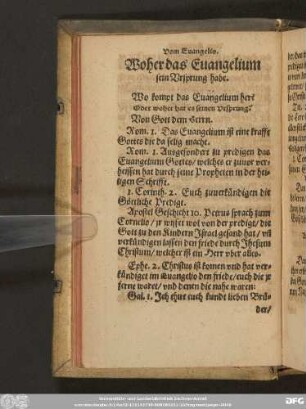 Vom Euangelio.
Woher das Euangelium
sein Vrsprung habe.
Wo kompt das Euangelium her?
Oder woher hat es seinen Vrsprung?
Von Gott dem Herrn.
Rom. 1. Das Euangelium ist eine krafft
Gottes die da selig macht.
Rom. 1. Ausgesondert zu predigen das
Euangelium Gottes/ welches er zuuor ver-
heissen hat durch seine Propheten in der hei-
ligen Schrifft.
1. Corinth. 2. Euch zuuerkündigen die
Göttliche Predigt.
Apostel Geschicht 10. Petrus sprach zum
Cornelio/ jr wisset wol von der predigt/ die
Gott zu den Kindern Israel gesand hat/ vñ
verkündigen lassen den friede durch Jhesum
Christum/ welcher ist ein Herr vber alles.
Ephe. 2. Christus ist komen vnd hat ver-
kündiget im Euangelio den friede/ euch die jr
ferne waret/ vnd denen die nahe waren:
Gal. 1. Ich thue euch kundt lieben Brü-
der/